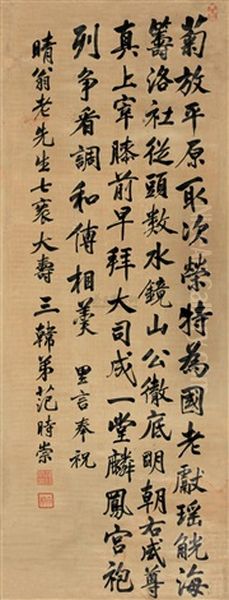 菊放平原取次荣特為國老獻瑤觥海
籌洛社從頭數水鏡山公徹底明朝右咸尊
真上宰膝前早拜大司成一堂麟鳳宮袍
列争看調和傅相羹 里言奉祝
晴翁老先生七袠大壽 三韓弟范時崇